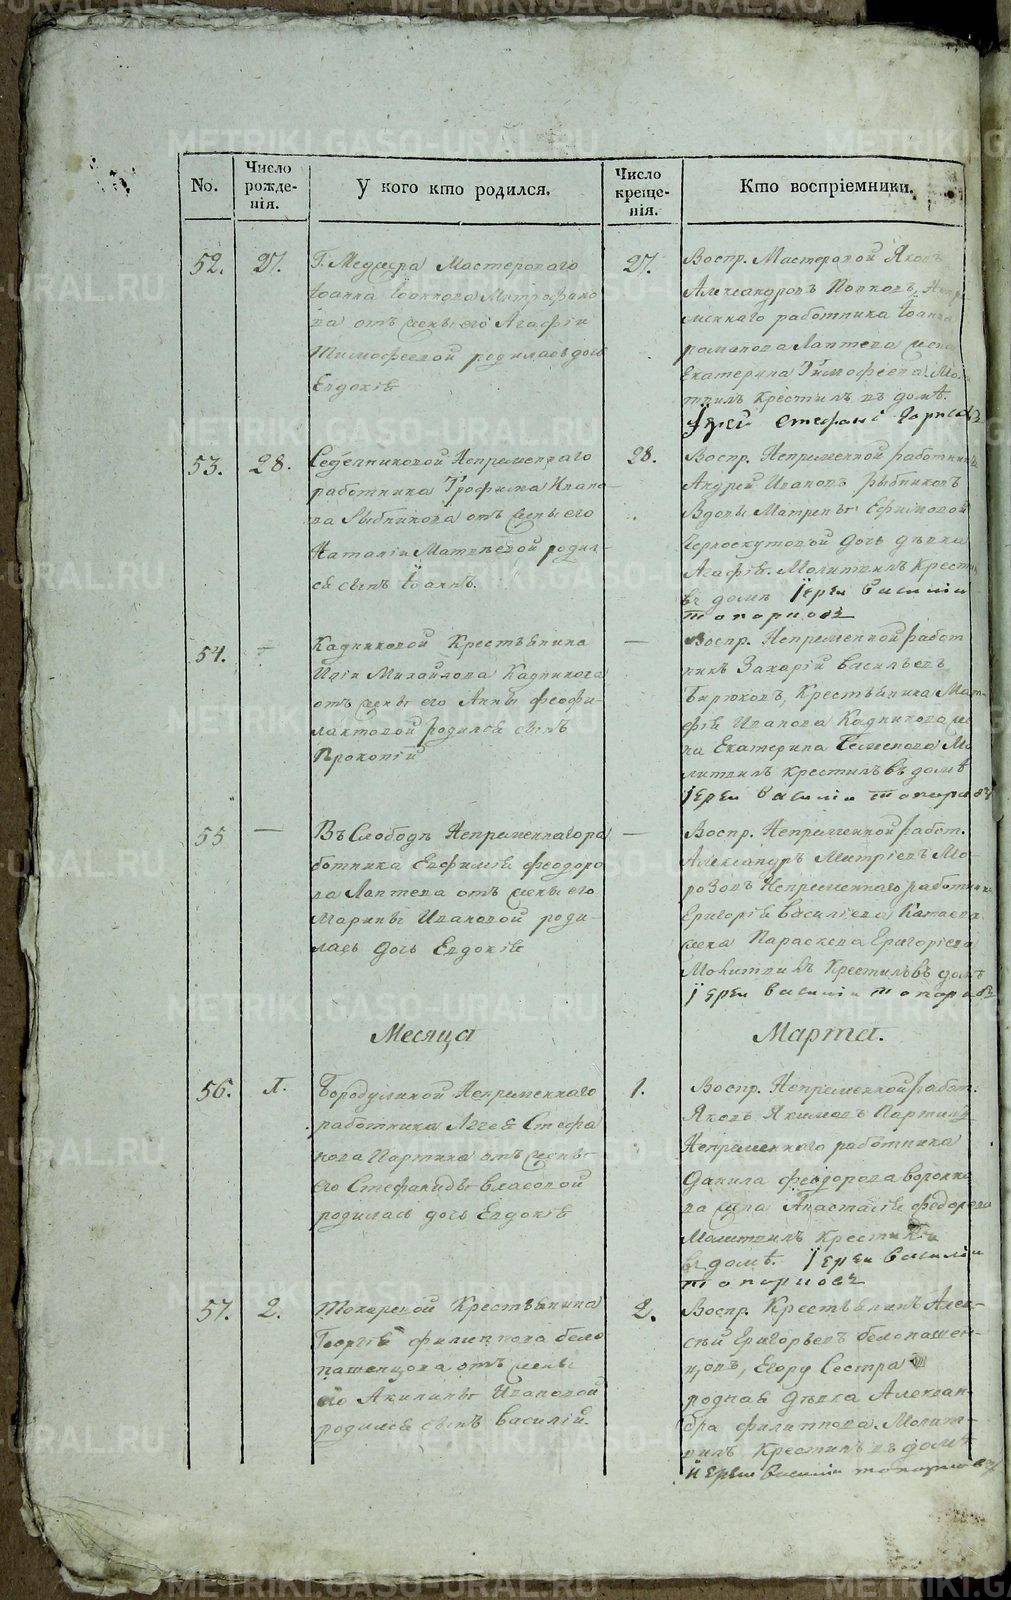 No.
Число рожде-нія.
У кого кто родился.
Число креще-нія.
Кто воспріемники.
52.
27.
Г. Медиера Мастероваго
Іоанна Іоаннова Митрофано
ва отъ жены его Агафіи
Тимофеевой родилась дочь
Евдокія
27.
Воспр. Мастеровой Яковъ
Александровъ Поповъ, Непре
меннаго работника Іоанна
романова Лаптева жена
Екатерина Тимофеева. Мо
твилъ крестилъ въ домѣ.
Іерей Стефанъ
53.
28.
Седельниковой Непременнаго
работника Трофима Ивано
ва Рыбникова отъ жены его
Наталіи Матвѣевой родил-
ся сынъ Іоаннъ.
28.
Воспр. Непременной работникъ
Андрей Ивановъ Рыбниковъ
Вдовы Матрены Ефимовой
Черноскутовой дочь дѣвка
Агафія. Молитвилъ крести
въ доме Іерей Василій
топорновъ
54.
Кадниковой Крестьянина
Иліи Михайлова Кадникова
отъ жены его Анны феофи-
лактовой родился сынъ
Прокопій
Воспр. Непременной работ
никъ Захарій васильевъ
Бирюковъ, Крестьянина Мат-
фія Иванова Кадникова же
на Екатерина Семенова Мо
литвилъ крестилъ въ домѣ
Іерей василій топорновъ
55
Въ Слободѣ Непременнаго ра
ботника Евфимія феодоро
ва Лаптева отъ жены его
Марины Ивановой роди-
лась дочь Евдокія
Воспр. Непременной работ.
Александръ Митріевъ Мо-
розовъ Непременнаго работника
Григорія василіева Катаева
жена Параскева Григоріева
Молитвилъ Крестилъ въ домѣ
Іерей василій топорновъ
Месяца
Марта.
56.
1.
Бородулиной Непременнаго
работника Аггея Стефа
нова Партина отъ жены
его Стефаниды власовой
родилась дочь Евдокія
1.
Воспр. Непременной работ.
Яковъ Якимовъ Партинъ
Непременнаго работника
Данила феодорова воронко
ва жена Анастасія федорова
Молитвилъ крестилъ
въ домѣ. Іерей василій
топорновъ
57.
2.
Токаревой Крестьянина
Георгія филиппова бело
пашенцова отъ жены
его Акилины Ивановой
родился сынъ василій.
2.
Воспр. Крестьянинъ Алек-
сѣй Григорьевъ белопашен-
цовъ, Егору Сестра
родная дѣвка Алексан-
дра филиппова. Молит-
вилъ крестилъ въ домѣ
Іерей василій топорновъ
METRIKI.GASO-URAL.RU